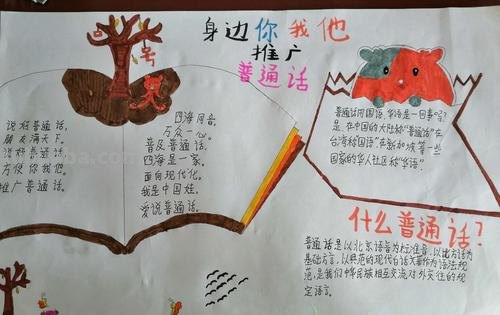 身边你我他
推广
普通话
号
说好普通话,
朋友满天下。
说好普通话,
方便你我他。
推广普通话。
四海同音,
万众一心。
普及普通话。
四海是一家。
面向现代化。
我是中国娃,
爱说普通话。
普通话同国语,华语是一回事吗?
是,在中国的大陆称"普通话"在
台湾称国语",在新加坡等一些
国家的华人社区称"华语"
什么普通话?
普通话是以北京语音为标准音,以北方话为
基础方言,以典范的现代白话文著作为语法规
范,是我们中华民族相互交流对外交往的规
定语言。